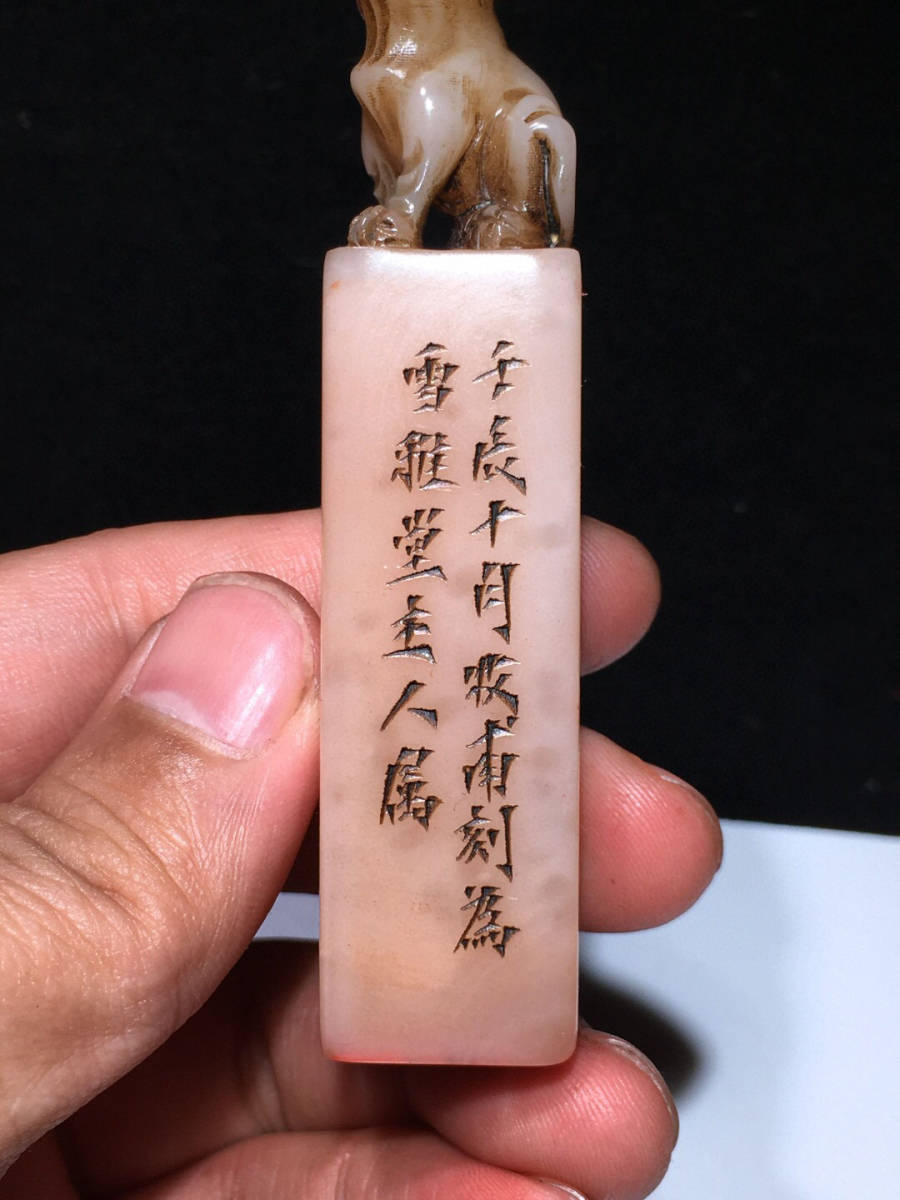 壬辰十月牧甫刻為
雪雅堂主人属